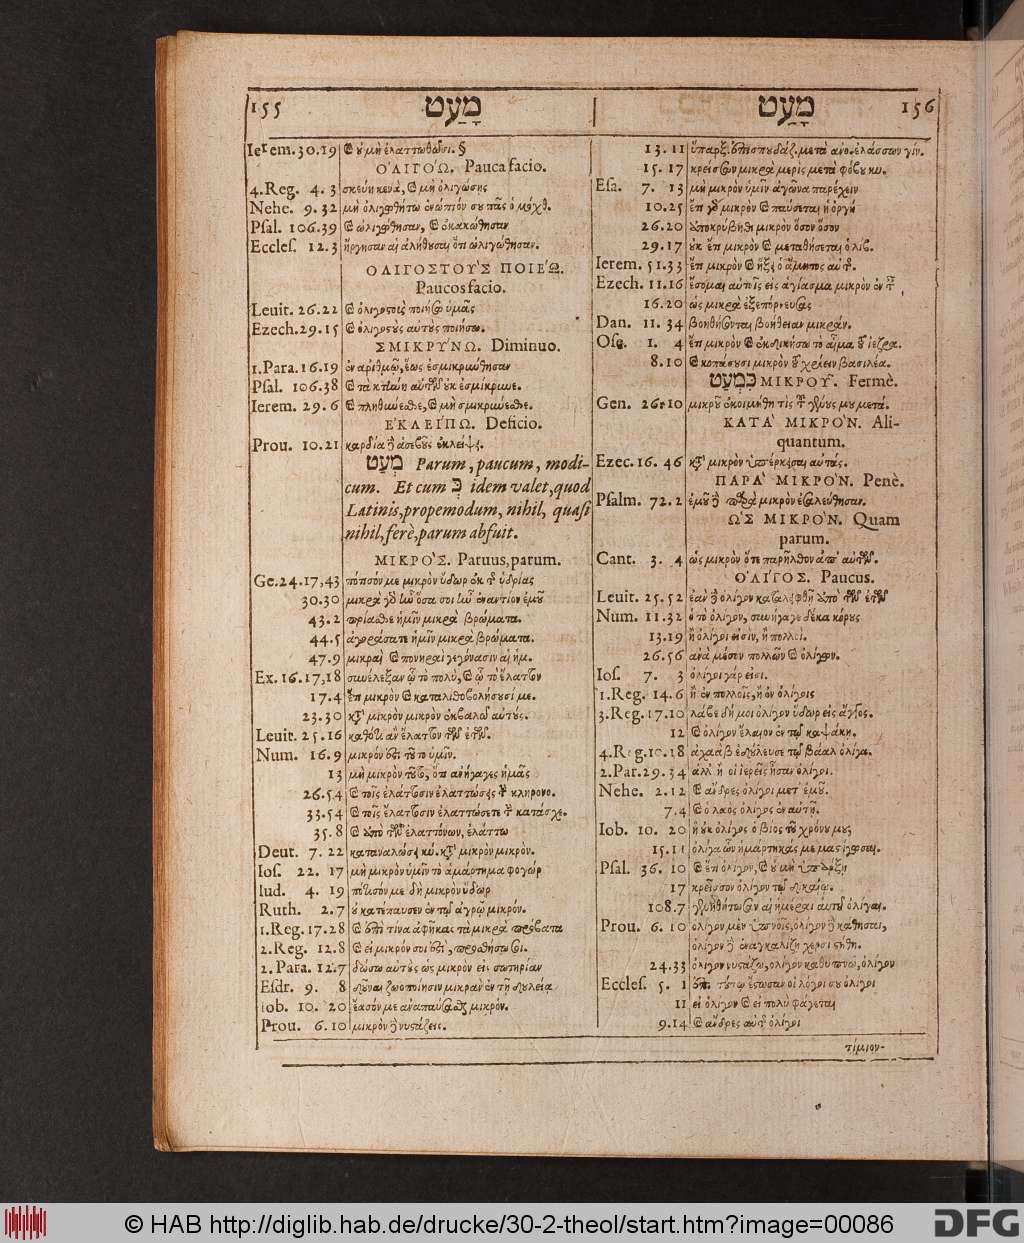 155 מָעַט
Ierem. 30.19 καὶ οὐ μὴ ἐλαττωθῶσι. §
ὈΛΙΓΌΩ. Pauca facio.
4. Reg. 4. 3 σκεύη κενά, καὶ μὴ ὀλιγώσῃς
Nehe. 9. 32 μὴ ὀλιγωθήτω ἐνώπιόν σου πᾶς ὁ μόχθ.
Psal. 106.39 καὶ ὠλιγώθησαν, καὶ ἐκακώθησαν
Eccles. 12.3 ἤργησαν αἱ ἀλήθουσαι ὅτι ὠλιγώθησαν.
ΟΛΙΓΟΣΤΟΥ῀Σ ΠΟΙΕΏ.
Paucos facio.
Leuit. 26.22 καὶ ὀλιγοστοὺς ποιήσω ὑμᾶς
Ezech. 29.15 καὶ ὀλιγοστοὺς αὐτοὺς ποιήσω.
ΣΜΙΚΡΎΝΩ. Diminuo.
1. Para. 16.19 ἐν ἀριθμῷ, ἕως ἐσμικρύνθησαν
Psal. 106.38 καὶ τὰ κτήνη αὐτῶν οὐκ ἐσμίκρυνε.
Ierem. 29. 6 καὶ πληθύνεσθε, καὶ μὴ σμικρύνεσθε.
ἘΚΛΕΊΠΩ. Deficio.
Prou. 10.21 καρδία δὲ ἀσεβοῦς ἐκλείψει.
מְעַט Parum, paucum, modi-
cum. Et cum כְּ idem valet, quod
Latinis, propemodum, nihil, quasi
nihil, ferè, parum abfuit.
ΜΙΚΡῸΣ. Paruus, parum.
Ge. 24.17,43 πότισόν με μικρὸν ὕδωρ ἐκ τῆς ὑδρίας
30.30 μικρὰ γὰρ ἦν ὅσα σοι ἦν ἐναντίον ἐμοῦ
43. 2 πρίασθε ἡμῖν μικρὰ βρώματα.
44. 5 ἀγοράσατε ἡμῖν μικρὰ βρώματα.
47. 9 μικραὶ καὶ πονηραὶ γεγόνασιν αἱ ἡμ.
Ex. 16.17,18 συνέλεξαν ᾧ τὸ πολὺ, καὶ ᾧ τὸ ἔλαττον
17. 4 ἔτι μικρὸν καὶ καταλιθοβολήσουσί με.
23. 30 κατὰ μικρὸν μικρὸν ἐκβαλῶ αὐτούς.
Leuit. 25. 16 καθότι ἂν ἔλαττον τῶν ἐτῶν.
Num. 16. 9 μικρόν ἐστι τοῦτο ὑμῖν.
13 μὴ μικρὸν τοῦτο, ὅτι ἀνήγαγες ἡμᾶς
26. 54 καὶ τοῖς ἐλάττοσιν ἐλαττώσεις τὴν κληρονο.
33. 54 καὶ τοῖς ἐλάττοσιν ἐλαττώσετε τὴν κατάσχε.
35. 8 καὶ ἀπὸ τῶν ἐλαττόνων, ἐλάττω
Deut. 7. 22 καταναλώσει κύ. κατὰ μικρὸν μικρὸν.
Ios. 22. 17 μὴ μικρὸν ὑμῖν τὸ ἁμάρτημα φογώρ
Iud. 4. 19 πότισόν με δὴ μικρὸν ὕδωρ
Ruth. 2. 7 οὐ κατέπαυσεν ἐν τῷ ἀγρῷ μικρόν.
1. Reg. 17.28 καὶ ἐπὶ τίνα ἀφῆκας τὰ μικρὰ πρόβατα
2. Reg. 12.8 καὶ εἰ μικρόν σοι ἐστί, προσθήσω σοι.
2. Para. 12.7 δώσω αὐτοὺς ὡς μικρὸν εἰς σωτηρίαν
Esdr. 9. 8 δοῦναι ζωοποίησιν μικρὰν ἐν τῇ δουλείᾳ
Iob. 10. 20 ἔασόν με ἀναπαύσασθαι μικρόν.
Prou. 6. 10 μικρὸν δὲ νυστάζεις.
מָעַט 156
13. 11 ὕπαρξ. ἐπισπουδαζ. μετὰ ἀνο. ἐλάσσων γίν.
15. 17 κρείσσων μικρὰ μερὶς μετὰ φόβου κυ.
Esa. 7. 13 μὴ μικρὸν ὑμῖν ἀγῶνα παρέχειν
10.25 ἔτι γὰρ μικρὸν καὶ παύσεται ἡ ὀργὴ
26.20 ἀποκρύβηθι μικρὸν ὅσον ὅσον
29.17 οὐκ ἔτι μικρὸν καὶ μεταθήσεται ὁ λίβ.
Ierem. 51.33 ἔτι μικρὸν καὶ ἥξει ὁ ἄμητος αὐτῆς.
Ezech. 11.16 ἔσομαι αὐτοῖς εἰς ἁγίασμα μικρὸν ἐν τῇ
16.20 ὡς μικρὰ ἐξεπόρνευσας
Dan. 11. 34 βοηθήσονται βοήθειαν μικράν.
Ose. 1. 4 ἔτι μικρὸν καὶ ἐκδικήσω τὸ αἷμα τοῦ ἰεζρα.
8.10 καὶ κοπάσουσι μικρὸν τοῦ χρίειν βασιλέα.
כִּמְעַט ΜΙΚΡΟΥ῀. Fermè.
Gen. 26.10 μικροῦ ἐκοιμήθη τὶς τοῦ γένους μου μετά.
ΚΑΤᾺ ΜΙΚΡῸΝ. Ali-
quantum.
Ezec. 16. 46 κατὰ μικρὸν ὑπέρκεισαι αὐτάς.
ΠΑΡᾺ ΜΙΚΡῸΝ. Penè.
Psalm. 72. 2 ἐμοῦ δὲ παρὰ μικρὸν ἐσαλεύθησαν.
ὩΣ ΜΙΚΡῸΝ. Quam
parum.
Cant. 3. 4 ὡς μικρὸν ὅτε παρῆλθον ἀπ' αὐτῶν.
ὈΛΊΓΟΣ. Paucus.
Leuit. 25. 52 ἐὰν δὲ ὀλίγον καταλειφθῇ ἀπὸ τῶν ἐτῶν
Num. 11. 32 ὁ τὸ ὀλίγον, συνήγαγε δέκα κόρους
13.19 ἢ ὀλίγοι εἰσὶν, ἢ πολλοί.
26.56 ἀνὰ μέσον πολλῶν καὶ ὀλίγων.
Ios. 7. 3 ὀλίγοι γάρ εἰσι.
1. Reg. 14. 6 ἢ ἐν πολλοῖς, ἢ ἐν ὀλίγοις
3. Reg. 17.10 λάβε δή μοι ὀλίγον ὕδωρ εἰς ἄγγος.
12 καὶ ὀλίγον ἔλαιον ἐν τῷ καψάκῃ.
4. Reg. 10.18 ἀχαὰβ ἐδούλευσε τῷ βάαλ ὀλίγα.
2. Par. 29. 34 ἀλλ' ἢ οἱ ἱερεῖς ἦσαν ὀλίγοι.
Nehe. 2. 12 καὶ ἄνδρες ὀλίγοι μετ' ἐμοῦ.
7. 4 καὶ ὁ λαὸς ὀλίγος ἐν αὐτῇ.
Iob. 10. 20 ἢ οὐκ ὀλίγος ὁ βίος τοῦ χρόνου μου;
15. 11 ὀλίγα ὧν ἡμάρτηκας μεμαστίγωσαι.
Psal. 36. 10 καὶ ἔτι ὀλίγον, καὶ οὐ μὴ ὑπάρξῃ
17 κρεῖσσον ὀλίγον τῷ δικαίῳ.
108.7 γενηθήτωσαν αἱ ἡμέραι αὐτοῦ ὀλίγαι.
Prou. 6. 10 ὀλίγον μὲν ὑπνοῖς, ὀλίγον δὲ κάθησαι,
ὀλίγον δὲ ἐναγκαλίζῃ χερσὶ στήθη.
24.33 ὀλίγον νυστάζω, ὀλίγον καθυπνῶ, ὀλίγον
Eccles. 5. 1 ἐπὶ τούτῳ ἔστωσαν οἱ λόγοι σου ὀλίγοι
11 εἰ ὀλίγον καὶ εἰ πολὺ φάγεται
9.14 καὶ ἄνδρες αὐτῇ ὀλίγοι
τίμιον-
© HAB http://diglib.hab.de/drucke/30-2-theol/start.htm?image=00086
DFG